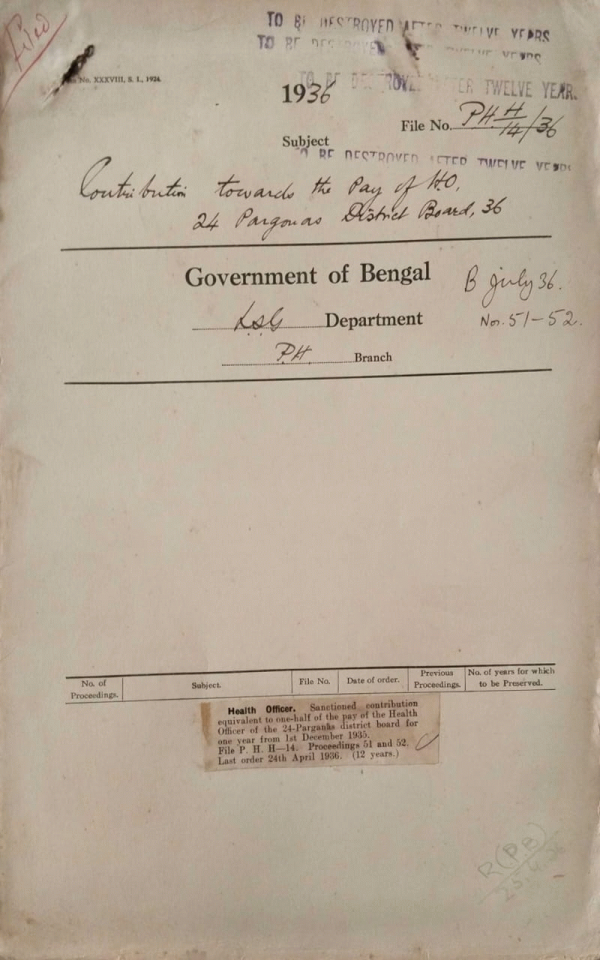 Filed
TO BE DESTROYED AFTER TWELVE YEARS
TO BE DESTROYED AFTER TWELVE YEARS
No. XXXVIII, S. I., 1924.
TO BE DESTROYED AFTER TWELVE YEAR.
1936
File No. PH H/14/36
Subject
TO BE DESTROYED AFTER TWELVE YEARS
Contribution towards the Pay of HO,
24 Parganas District Board, 36
Government of Bengal
B July 36.
LSG Department
Nos. 51-52.
P.H. Branch
No. of Proceedings. Subject. File No. Date of order. Previous Proceedings. No. of years for which to be Preserved.
Health Officer. Sanctioned contribution
equivalent to one-half of the pay of the Health
Officer of the 24-Parganas district board for
one year from 1st December 1935.
File P. H. H—14. Proceedings 51 and 52.
Last order 24th April 1936. (12 years.)
R(PB)